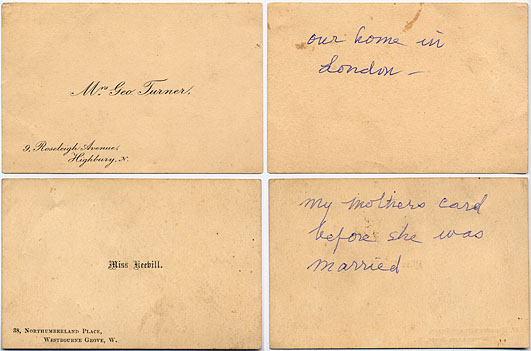 Mrs Geo. Turner.
9, Roseleigh Avenue,
Highbury, N.
our home in
London –
Miss Keevill.
38, Northumberland Place,
Westbourne Grove, W.
my mothers card
before she was
married